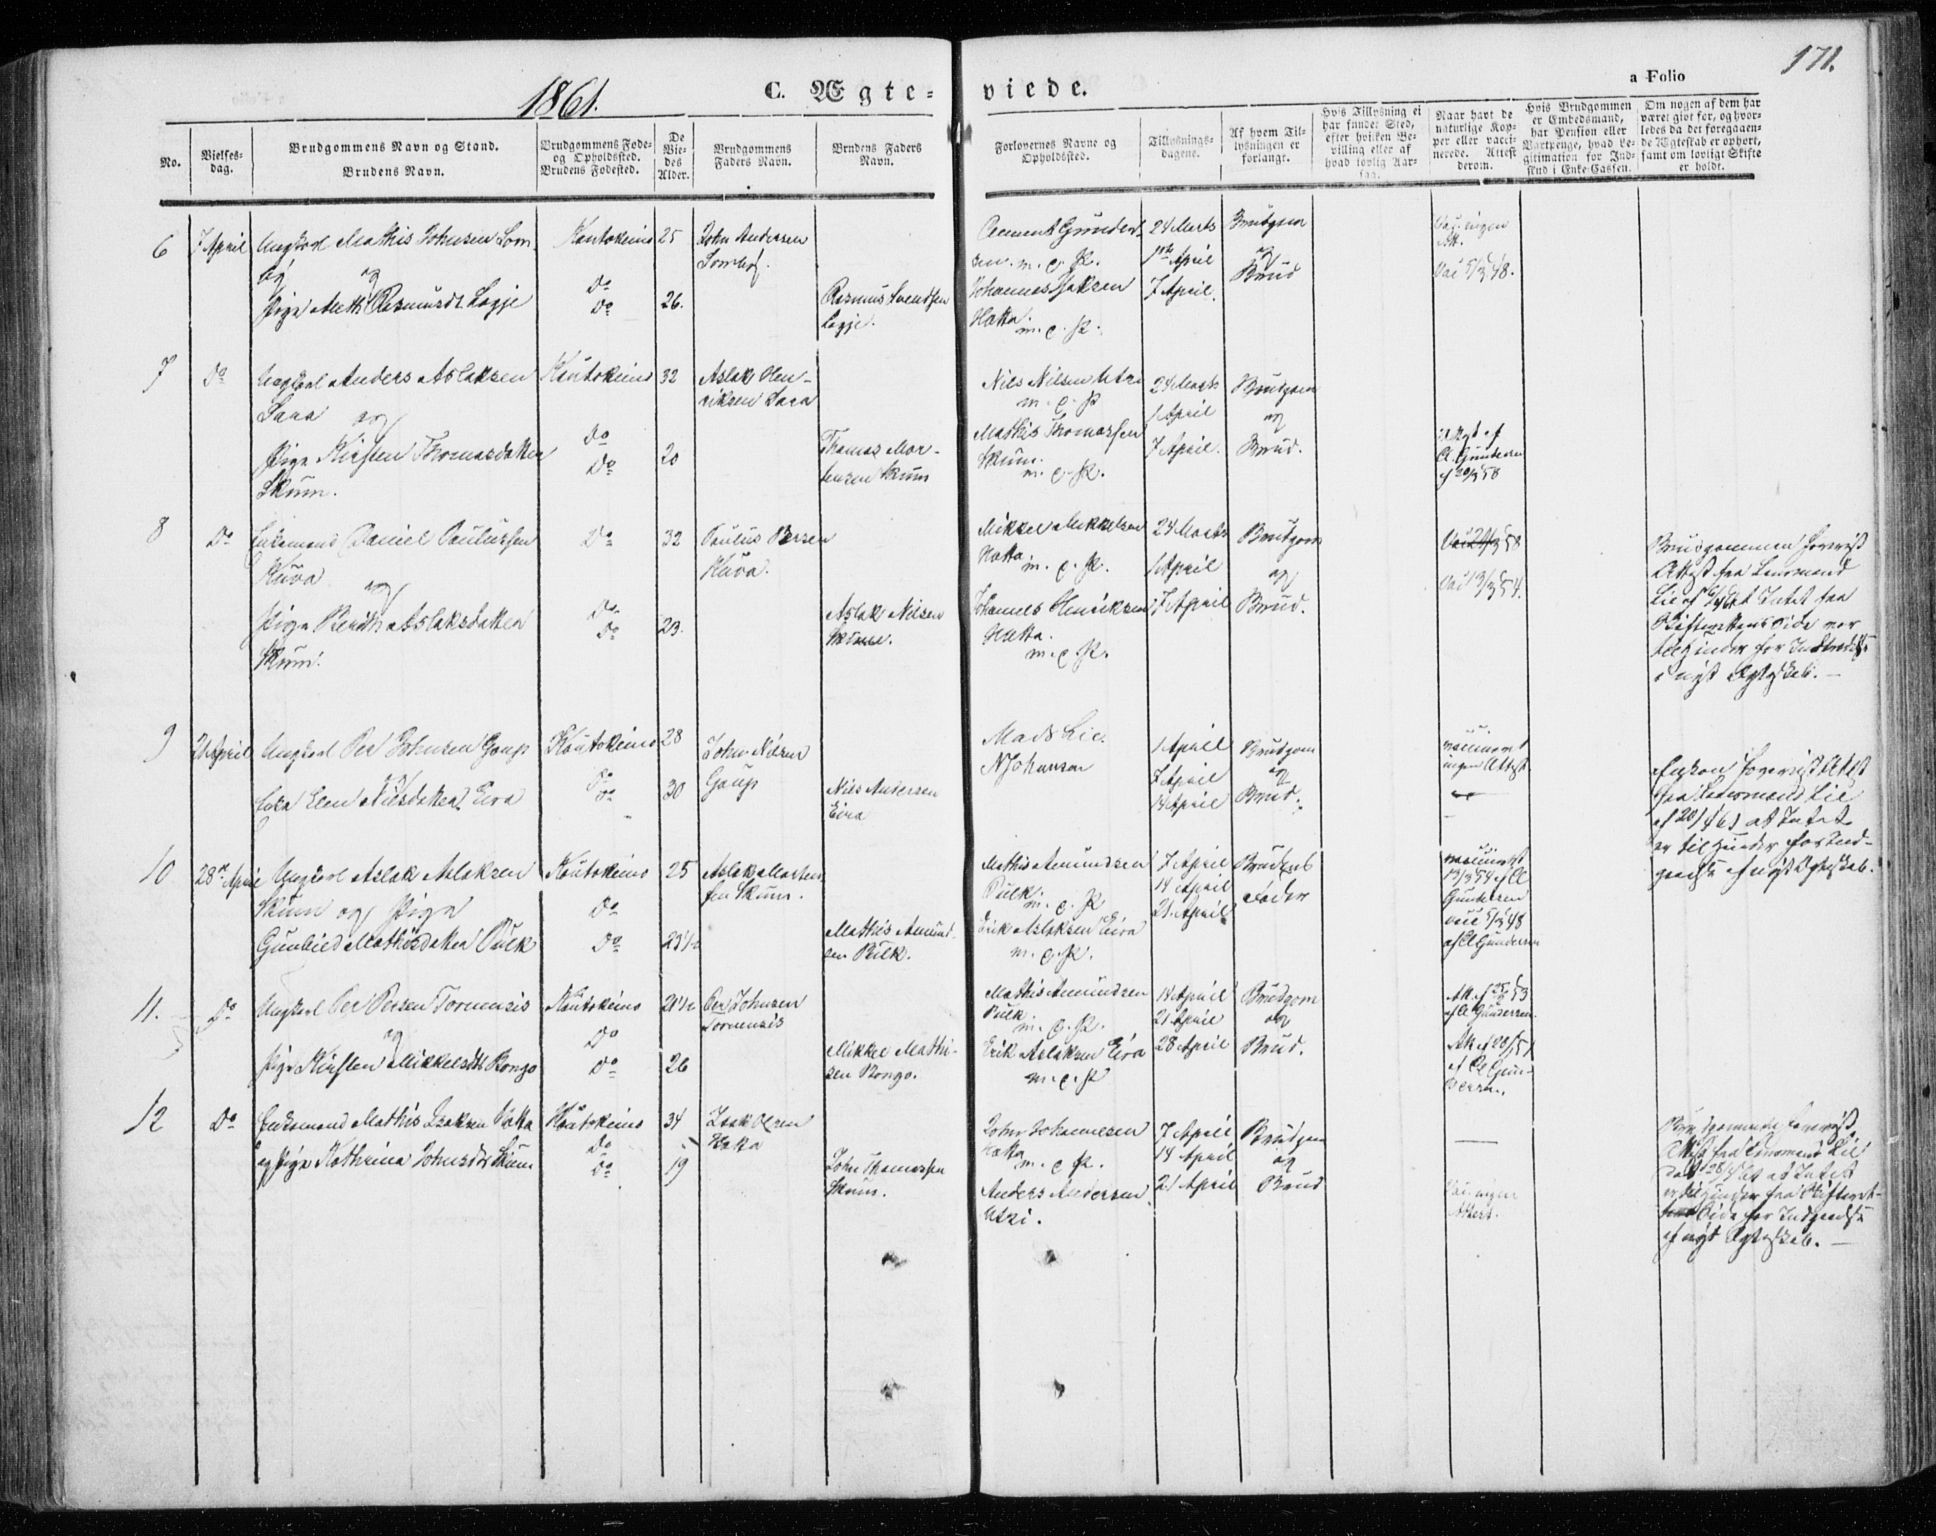 1861.
C. Ægteviede.
a Folio
171.
No.
Vielsesdag.
Brudgommens Navn og Stand.
Brudens Navn.
Brudgommens Fødeog Opholdssted.
Brudens Fødested.
De Viedes Alder.
Brudgommens Faders Navn.
Brudens Faders Navn.
Forlovernes Navne og Opholdssted.
Tillysningsdagene.
Af hvem Tillysningen er forlangt.
Hvis Tillysning ei har fundet Sted, efter hvilken Bevilling eller af hvad lovlig Aarsag.
Naar havt de naturlige Kopper eller vaccinerede. Attest derom.
Hvis Brudgommen er Embedsmand, har Pension eller Vartpenge, hvad Legitimation for Indskud i Enke-Cassen.
Om nogen af dem har været gift før, og hvorledes da det foregaaende Ægteskab er ophørt, samt om lovligt Skifte er holdt.
6
7 April
Ungkarl Mathis Johnsen Som
og
Pige Marith Rasmusdt Logje
Koutokeino
Do
Do
25
26.
John Andersen
Somby.
Rasmus Svendsen
Logje.
Clement Gunder-
sen. m. p. P.
Johannes Isaksen
Hætta.
m. p. P.
24 Marts
1ste April
7 April.
Brudgom
og
Brud
Vac. ingen
Att.
Vac 5/3 48.
7
Do
Ungkarl Anders Aslaksen
Sara og
Pige Kirsten Thomasdatter
Skum.
Koutokeino
Do
Do
32
20
Aslak Hen-
riksen Sara
Thomas Mor-
tensen Skum
Nils Nilsen Utzi
m. p. P
Mathis Thomassen
Skum.
m. p. P.
24 Marts
1 April
7 April.
Brudgom
og
Brud.
Cl. Gundersen
8
Do
Enkemand Daniel Paulussen
Kuva
og
Pige Berith Aslaksdatter
Skum.
Do
Do
Do
32
23.
Paulus Persen
Kuva.
Aslak Nilsen
Skum.
Mikkel Mikkelsen
Hætta
m. p. P.
Johannes Henriksen
Hætta.
m. p. P.
24 Marts
1 April
7 April
Brudgom
og
Brud.
Vac 13/3 54.
Brudgommen foreviist
Attest fra Lensmand
Lie af
Skifterettens Side var
til Hinder for Indtrædelse
i nyt Ægteskab.
9
21 April
Ungkarl Per Johnsen Gaup
og
Enke Elen Nilsdatter Eira
Koutokeino
Do
Do
28
30
John Nilsen
Gaup
Nils Andersen
Eira
Mads Lie.
N Johansen
1 April
7 April
14 April
Brudgom
og
Brud.
vaccineret
ingen Attest.
Enken foreviist Attest
fra Lensmand Lie
af 20/4 61 at Intet
er til Hinder for Ind-
gaaelse af nyt Ægteskab.
10
28de April
Ungkarl Aslak Aslaksen
Skum og Pige
Gunhild Mathisdatter Pulk
Koutokeino
Do
Do
25
23 1/2
Aslak Morten-
sen Skum.
Mathis Amund-
sen Pulk.
Mathis Amundsen
Pulk.
m. p. P
Erik Aslaksen Eira
m. p. P.
7 April
14 April
21 April
Brudens
Fader
vaccineret
13/3 54 af Cl
Gundersen
vac 5/3 48
af Cl Gundersen
11.
Do
Ungkarl Per Persen Tornensis
og
Pige Kirsten Mikkelsdt Bongo
Koutokeino
Do
Do
21 1/2
26
Per Johnsen
Tornensis
Mikkel Mathi-
sen Bongo.
Mathis Amundsen
Pulk.
m. p. P.
Erik Aslaksen Eira
m. p. P
14 April
21 April
28 April
Brudgom
og
Brud.
af Cl Gundersen.
af Cl Gun-
dersen.
12
Do
Enkemand Mathis Isaksen Hætta
og Pige Kathrina Johnsdt Skum
Koutokeino
Do
Do
34
19
Isak Olsen
Hætta
John Thomassen
Skum.
John Johannesen
Hætta
m. p. P.
Anders Andersen
Utzi.
7 April
14 April
21 April
Brudgom
og
Brud
Vac. ingen
Attest.
Brudgommen foreviist
Attest fra Lensmand Lie
dat 28/4 61 at Intet
er til Hinder fra Skifteret-
tens Side for Indgaaelse
af nyt Ægteskab.